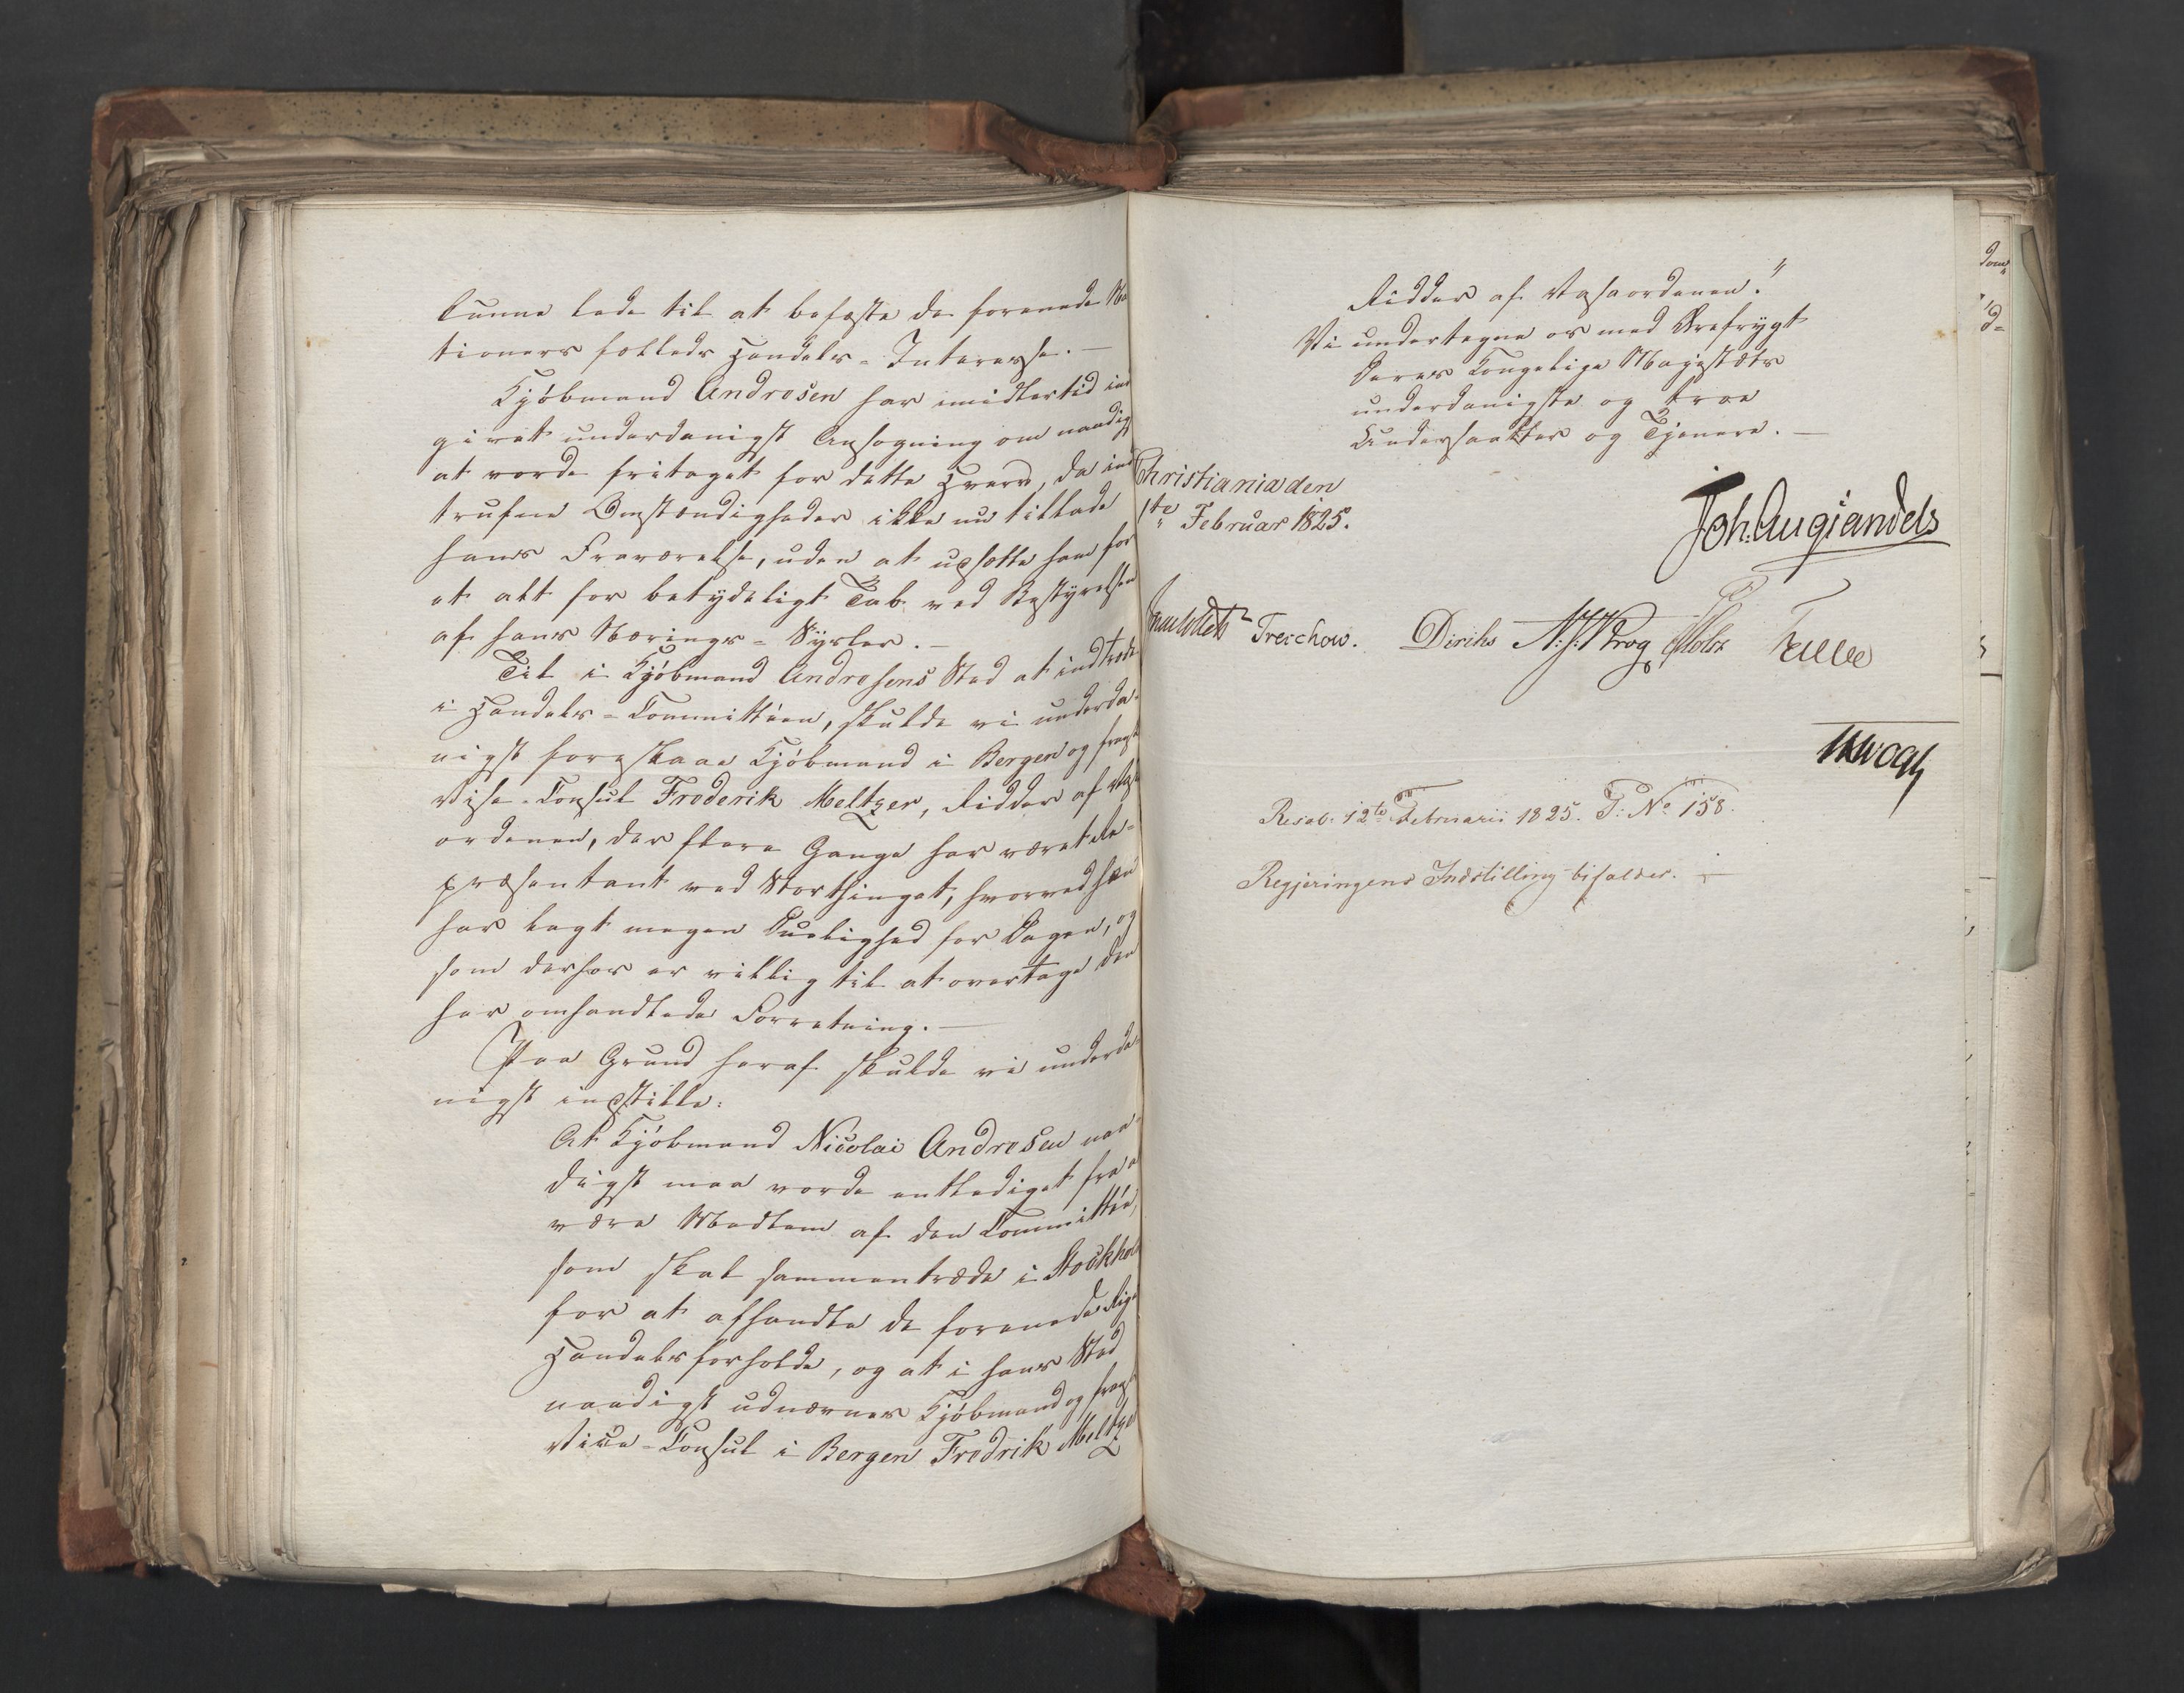 kunne lede til at befæste de forenede Na
tioners fælleds Handels-Interesse. —
Kjöbmand Andresen har imidlertid ind
givet underdanigst Ansøgning om naadigst
at vorde fritaget for dette Hverv, da ind
trufne Omstændigheder ikke nu tillade
hans Fraværelse, uden at udsætte ham for
et alt for betydeligt Tab ved Bestyrelsen
af hans Nærings-Sysler. —
Til i Kjöbmand Andresens Sted at indtræde
i Handels-Committéen, skulde vi underda-
nigst foreslaae Kjöbmand i Bergen og fregst
Vise-Consul Frederik Meltzer, Ridder af Vasa
ordenen, der flere Gange har været Re-
præsentant ved Storthinget, hvorved han
har lagt megen Duelighed for Dagen, og
som derhos er villig til at overtage den
her omhandlede Forretning. —
Paa Grund heraf skulde vi underda-
nigst indstille:
At Kjöbmand Nicolai Andresen naa-
digst maa vorde entlediget fra a
være Medlem af den Committée,
som skal sammentræde i Stockhol
for at afhandle de forenede Rige
Handelsforholde, og at i hans Sted
naadigst udnævnes Kjöbmand og fregst
Vice-Consul i Bergen Fredrik Meltze
Ridder af Vasaordenen."
Vi undertegne os med Ærefrygt
Deres Kongelige Majestæts
underdanigste og troe
Undersaatter og Tjenere. —
Christiania den
1te Februar 1825.
Joh: Aug: Sandels
Treschow. Diriks N. J. Krog Holst Fasting
Resol: 12te Februarii 1825. P: No 158.
Regjeringens Indstilling bifaldes.